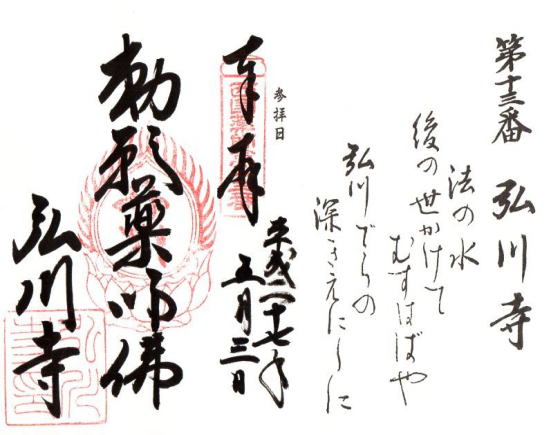 第十三番 弘川寺
法の水
後の世かけて
むすはばや
弘川でらの
深きえにしに
参拝日
奉拝
平成二十七年
五月三日
勅願薬師佛
弘川寺